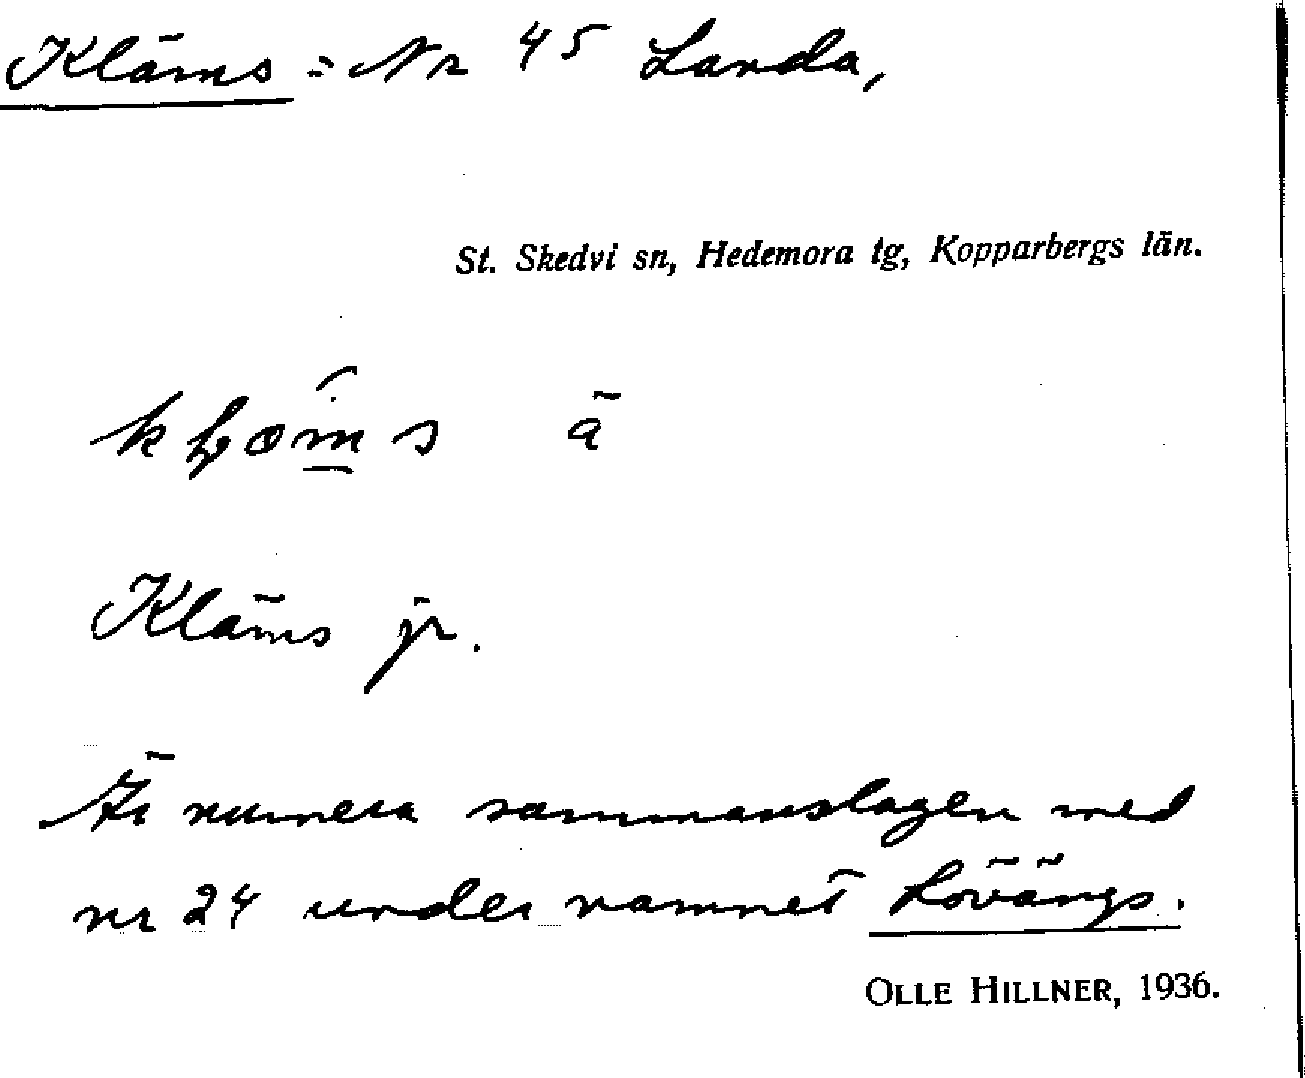 Kläms = Nr 45 Landa,
St. Skedvi sn, Hedemora tg, Kopparbergs län.
ä
Kläms jr.
Är numera sammanslagen med
nr 24 under namnet Lövängs.
OLLE HILLNER, 1936.